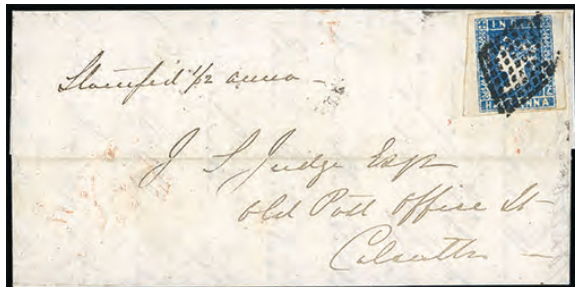 INDIA
HALF ANNA
Stamped 1/2 anna
J S Judge Esqr
Old Post Office St
Calcutta